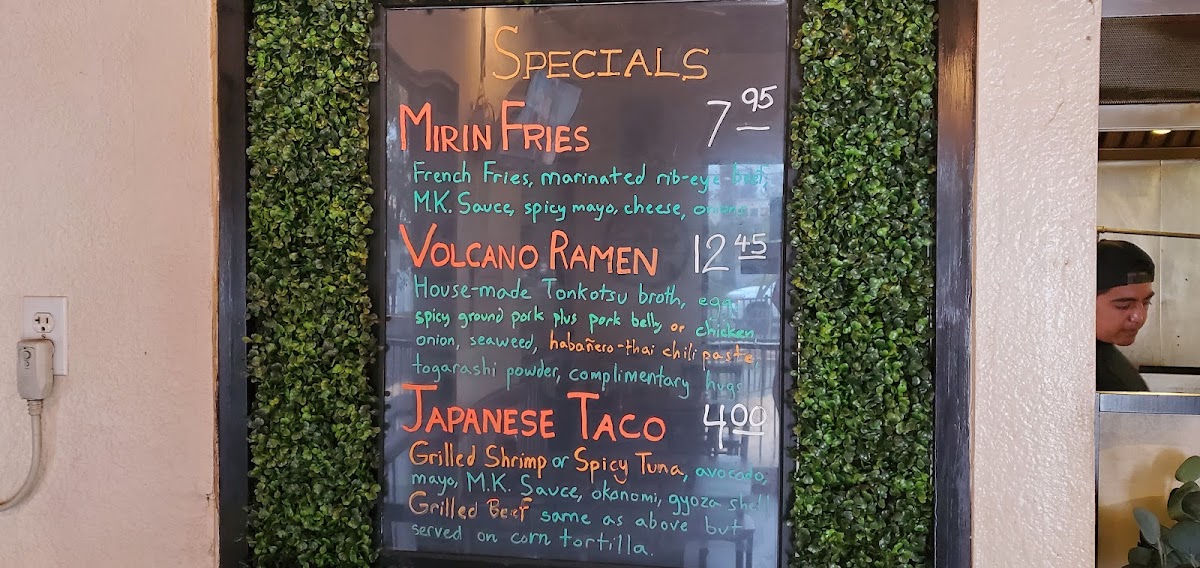 SPECIALS
MIRIN FRIES 7 95
French Fries, marinated rib-eye beef,
M.K. Sauce, spicy mayo, cheese, onions
VOLCANO RAMEN 12 45
House-made Tonkotsu broth, egg,
spicy ground pork plus pork belly or chicken,
onion, seaweed, habañero-thai chili paste,
togarashi powder, complimentary hugs
JAPANESE TACO 4 00
Grilled Shrimp or Spicy Tuna, avocado,
mayo, M.K. Sauce, okonomi, gyoza shell
Grilled Beef same as above but
served on corn tortilla.